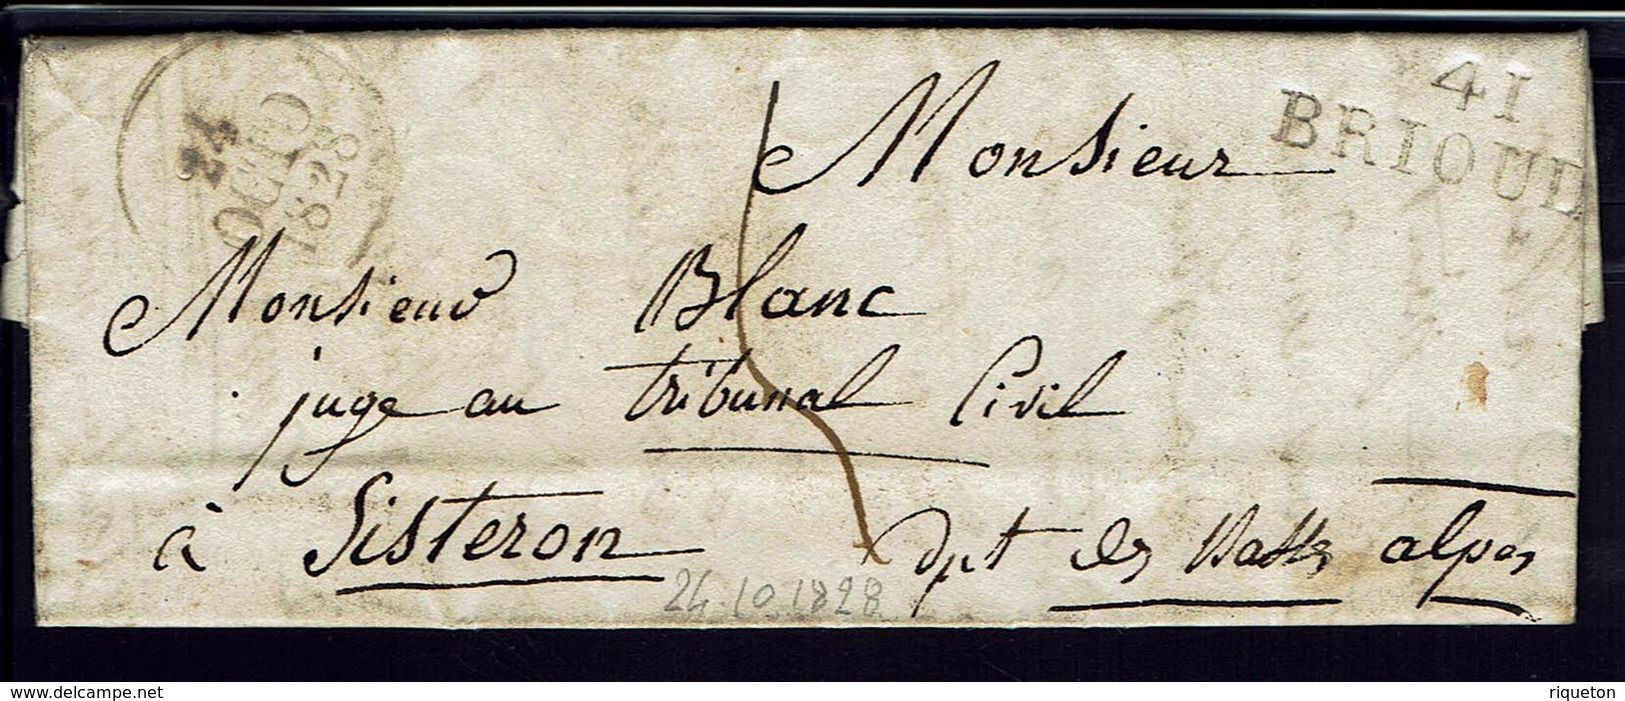 24
OCTO
1828
41
BRIOUD
Monsieur
Monsieur Blanc
juge au tribunal Civil
à Sisteron dpt des Basses alpes
24.10.1828
www.delcampe.net
riqueton